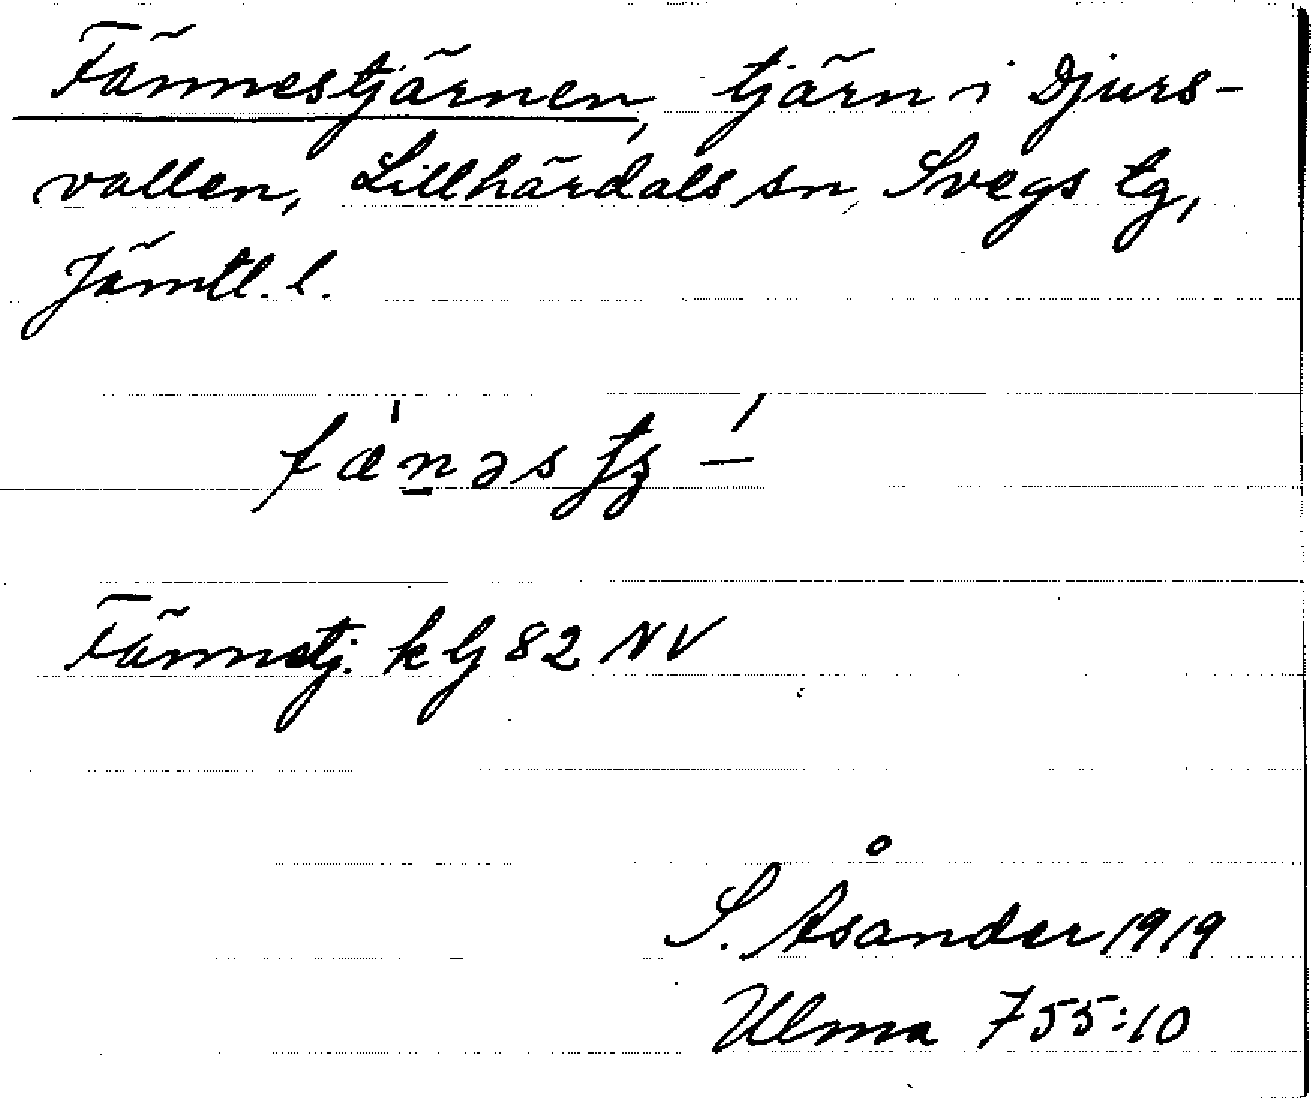 Fännestjärnen, tjärn i Djurs-
vallen, Lillhärdals sn, Svegs tg,
Jämtl. l.
Fännstj. kbl 82 NV
S. Åsander 1919
Ulma 755:10